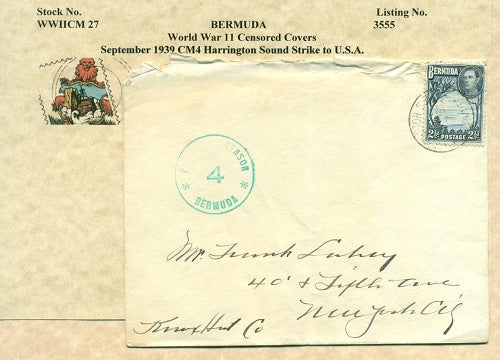 Stock No.
WWIICM 27
BERMUDA
Listing No.
3555
World War 11 Censored Covers
September 1939 CM4 Harrington Sound Strike to U.S.A.
BERMUDA
2½ POSTAGE 2½
4
BERMUDA
Mr. Frank Lahey
40 & Fifth Ave
New York City
Knox Hat Co